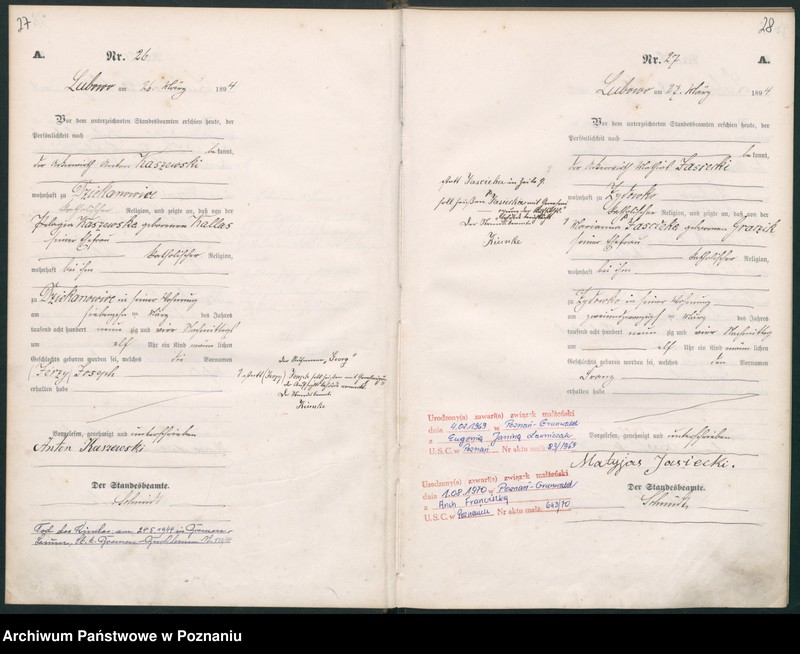 27
A.
Nr. 26
Lubowo am 26 März 1894
Vor dem unterzeichneten Standesbeamten erschien heute, der
Persönlichkeit nach
bekannt,
der Ackerwirth Anton Kaszewski
wohnhaft zu Dziekanowice
katholischer Religion, und zeigte an, daß von der
Pelagia Kaszewska geborenen Kallas
seiner Ehefrau
katholischer Religion,
wohnhaft bei ihm
zu Dziekanowice in seiner Wohnung
am März des Jahres
tausend acht hundert neunzig und vier Nachmittags
um elf Uhr ein Kind männlichen
Geschlechts geboren worden sei, welches die Vornamen
(Jerzy) Joseph
erhalten habe
der Vorname "Georg"
statt (Jerzy) Joseph soll heißen
Vorgelesen, genehmigt und unterschrieben
Anton Kaszewski
Der Standesbeamte.
Schmidt
28
Nr. 27
A.
Lubowo am 27. März 1894
Vor dem unterzeichneten Standesbeamten erschien heute, der
Persönlichkeit nach
bekannt,
der Ackerwirth Mathias Jasiecki
wohnhaft zu Żydowko
katholischer Religion, und zeigte an, daß von der
Marianna Jasiecka geborenen
seiner Ehefrau
katholischer Religion,
wohnhaft bei ihm
zu Żydowko in seiner Wohnung
am zweiundzwanzigsten März des Jahres
tausend acht hundert neunzig und vier Nachmittag
um elf Uhr ein Kind männlichen
Geschlechts geboren worden sei, welches den Vornamen
Franz
erhalten habe
statt Jasiecka in Zeile 9.
soll heißen Jasiecka
Der Standesbeamte
Urodzony(a) zawarł(a) związek małżeński
dnia 4.02.1969 w Poznań-Grunwald
z Eugenią Janiną Ławniczak
U.S.C. w Poznań Nr aktu małż. 83/1969
Urodzony(a) zawarł(a) związek małżeński
dnia 1.08.1970 w Poznań-Grunwald
z Anh Franciszką
U.S.C. w Poznaniu Nr aktu małż. 643/70
Vorgelesen, genehmigt und unterschrieben
Matyjas Jasiecki.
Der Standesbeamte.
Schmidt
Archiwum Państwowe w Poznaniu